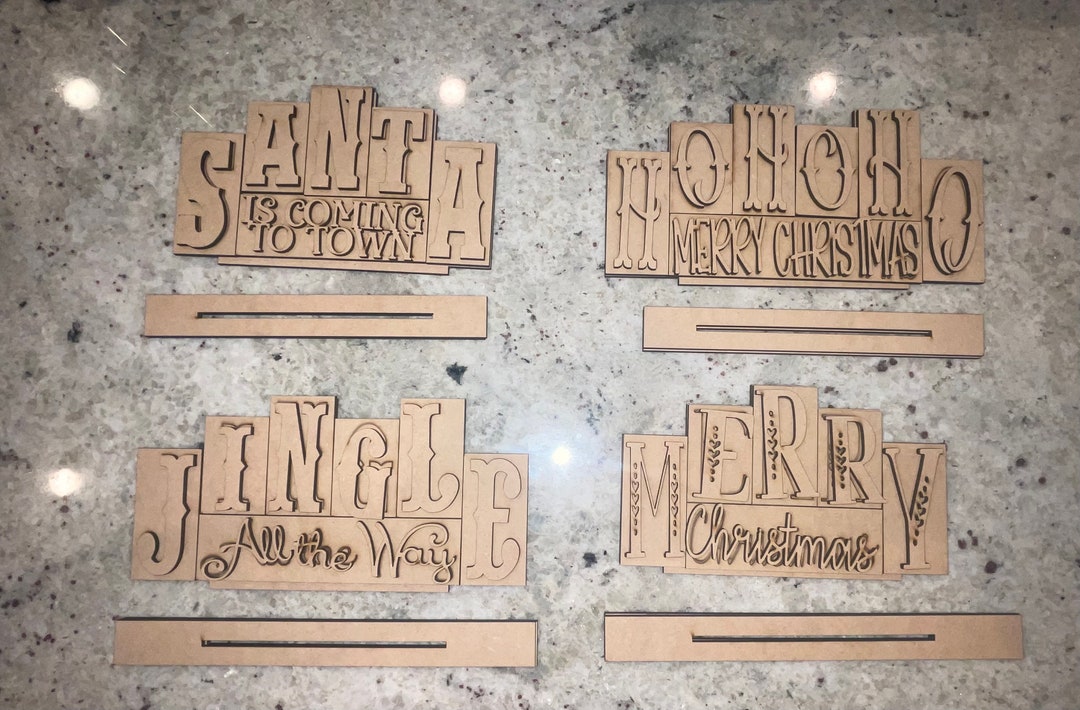 SANTA
IS COMING
TO TOWN
HOHOHO
MERRY CHRISTMAS
JINGLE
All the Way
MERRY
Christmas